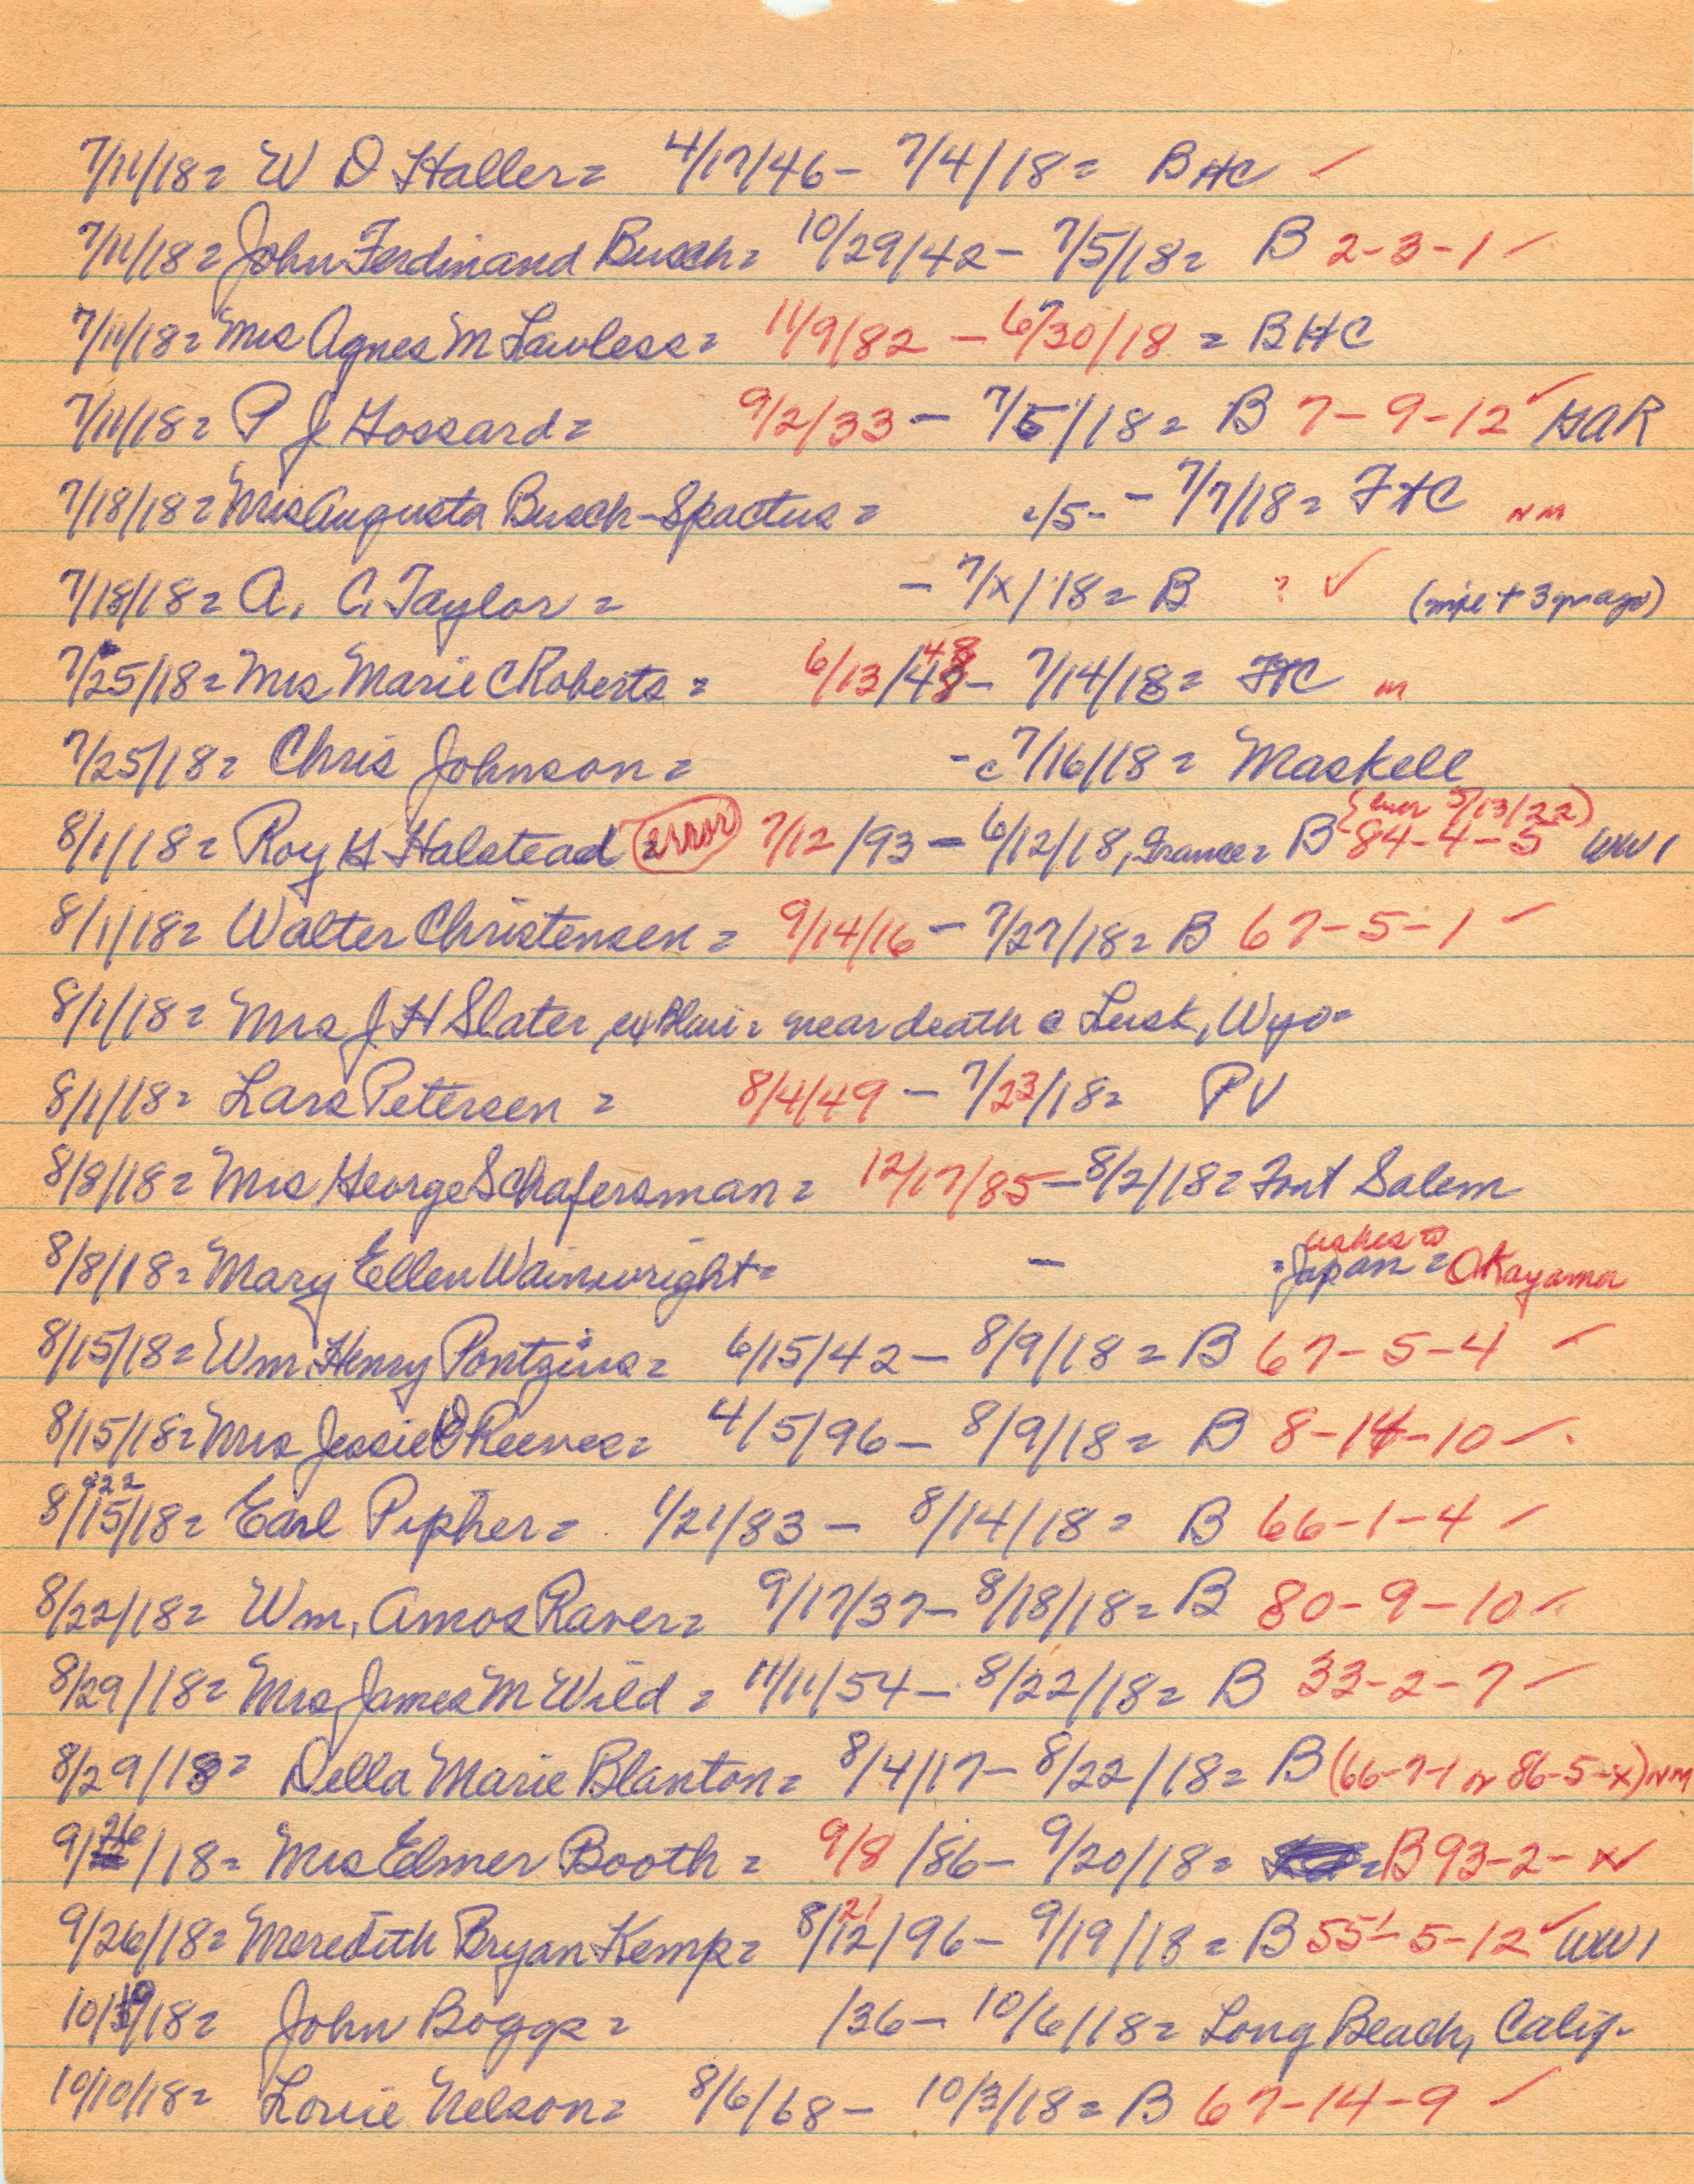 7/11/18= W D Haller= 4/17/46- 7/4/18= BHC ✓
7/11/18= John Ferdinand Busch= 10/29/42- 7/5/18= B 2-3-1 ✓
7/11/18= Mrs Agnes M Lawless= 11/9/82 - 6/30/18 = BHC
7/11/18= P J Gossard= 9/2/33 - 7/5/18= B 7-9-12 ✓ GAR
7/18/18= Mrs Augusta Busch-Spactus= c/5- - 7/7/18= FHC NM
7/18/18= A. C. Taylor= - 7/x/18= B ? ✓
7/25/18= Mrs Marie C Roberts= 6/13/48- 7/14/18= FHC m
7/25/18= Chris Johnson= -c 7/16/18= Maskell
8/1/18= Roy H Halstead = error 7/12/93- 6/12/18, France= B 84-4-5 (5/13/22) WW1
8/1/18= Walter Christensen= 9/14/16- 7/27/18= B 67-5-1 ✓
8/1/18= Mrs J H Slater, ex Blair= near death @ Lusk, Wyo=
8/1/18= Lars Petersen= 8/4/49- 7/23/18= PV
8/8/18= Mrs George Schafersman= 12/17/85- 8/2/18= Font Salem
8/8/18= Mary Ellen Wainwright= - = ashes to Japan= Okayama
8/15/18= Wm. Henry Pontzius= 6/15/42- 8/9/18= B 67-5-4 ✓
8/15/18= Mrs Jessie D Reeves= 4/5/96- 8/9/18= B 8-14-10 ✓
8/15/18= &22 Earl Pipher= 1/21/83- 8/14/18= B 66-1-4 ✓
8/22/18= Wm. Amos Raver= 9/17/37- 8/18/18= B 80-9-10 ✓
8/29/18= Mrs James M Wild= 11/11/54- 8/22/18= B 33-2-7 ✓
8/29/18= Della Marie Blanton= 8/4/17- 8/22/18= B (66-7-1 or 86-5-x) NM
9/26/18= Mrs Elmer Booth= 9/8/86- 9/20/18= B 93-2-x ✓
9/26/18= Meredith Bryan Kemp= 8/12/96- 21 9/19/18= B 55-5-12 ✓ WW1
10/10/18= John Boggs= /36- 10/6/18= Long Beach, Calif.
10/10/18= Louie Nelson= 8/6/68- 10/3/18= B 67-14-9 ✓